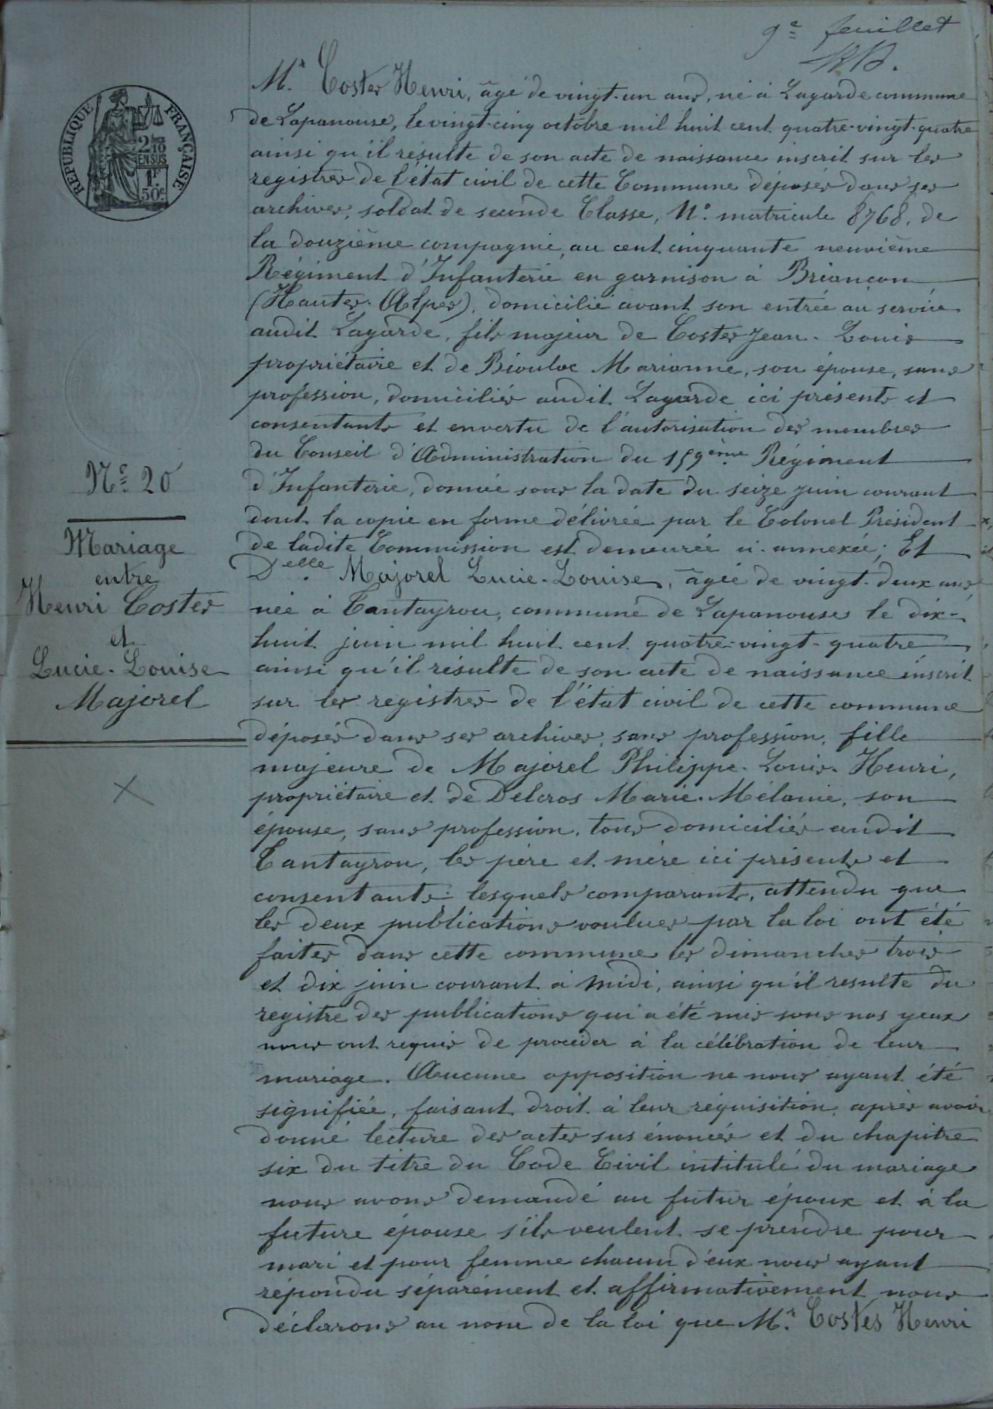 9e feuillet
RÉPUBLIQUE FRANÇAISE
2/10
EN SUS
1F
50c
Mr Costes Henri, âgé de vingt-un ans, né à Lagarde commune
de Lapanouse, le vingt cinq octobre mil huit cent quatre-vingt-quatre
ainsi qu'il résulte de son acte de naissance inscrit sur les
registres de l'état civil de cette Commune déposés dans ses
archives, soldat de seconde Classe, No matricule 8768, de
la douzième compagnie, au cent cinquante neuvième
Régiment d'Infanterie en garnison à Briançon
(Hautes-Alpes), domicilié avant son entrée au service
audit Lagarde, fils majeur de Costes Jean-Louis
propriétaire et de Bioulac Marianne, son épouse, sans
profession, domiciliés audit Lagarde ici présents et
consentants et en vertu de l'autorisation des membres
du Conseil d'Administration du 159ème Régiment
d'Infanterie, donnée sous la date du seize juin courant
dont la copie en forme délivrée par le Colonel Président
de ladite Commission est demeurée ci-annexée; Et
Delle Majorel Lucie-Louise, âgée de vingt-deux ans
née à Cantayrou, commune de Lapanouse le dix-
huit juin mil huit cent quatre-vingt-quatre
ainsi qu'il résulte de son acte de naissance inscrit
sur les registres de l'état civil de cette commune
déposés dans ses archives, sans profession, fille
majeure de Majorel Philippe-Louis-Henri,
propriétaire et de Delcros Marie-Mélanie, son
épouse, sans profession, tous domiciliés audit
Cantayrou, les père et mère ici présents et
consentants; lesquels comparants, attendu que
les deux publications voulues par la loi ont été
faites dans cette commune les dimanches trois
et dix juin courant à midi, ainsi qu'il resulte du
registre des publications qui a été mis sous nos yeux
nous ont requis de procéder à la célébration de leur
mariage. Aucune opposition ne nous ayant été
signifiée, faisant droit à leur réquisition, après avoir
donné lecture des actes sus énoncés et du chapitre
six du titre du Code Civil intitulé du mariage
nous avons demandé au futur époux et à la
future épouse s'ils veulent se prendre pour
mari et pour femme chacun d'eux nous ayant
répondu séparément et affirmativement nous
déclarons au nom de la loi que Mr Costes Henri
No 20
Mariage
entre
Henri Costes
et
Lucie-Louise
Majorel